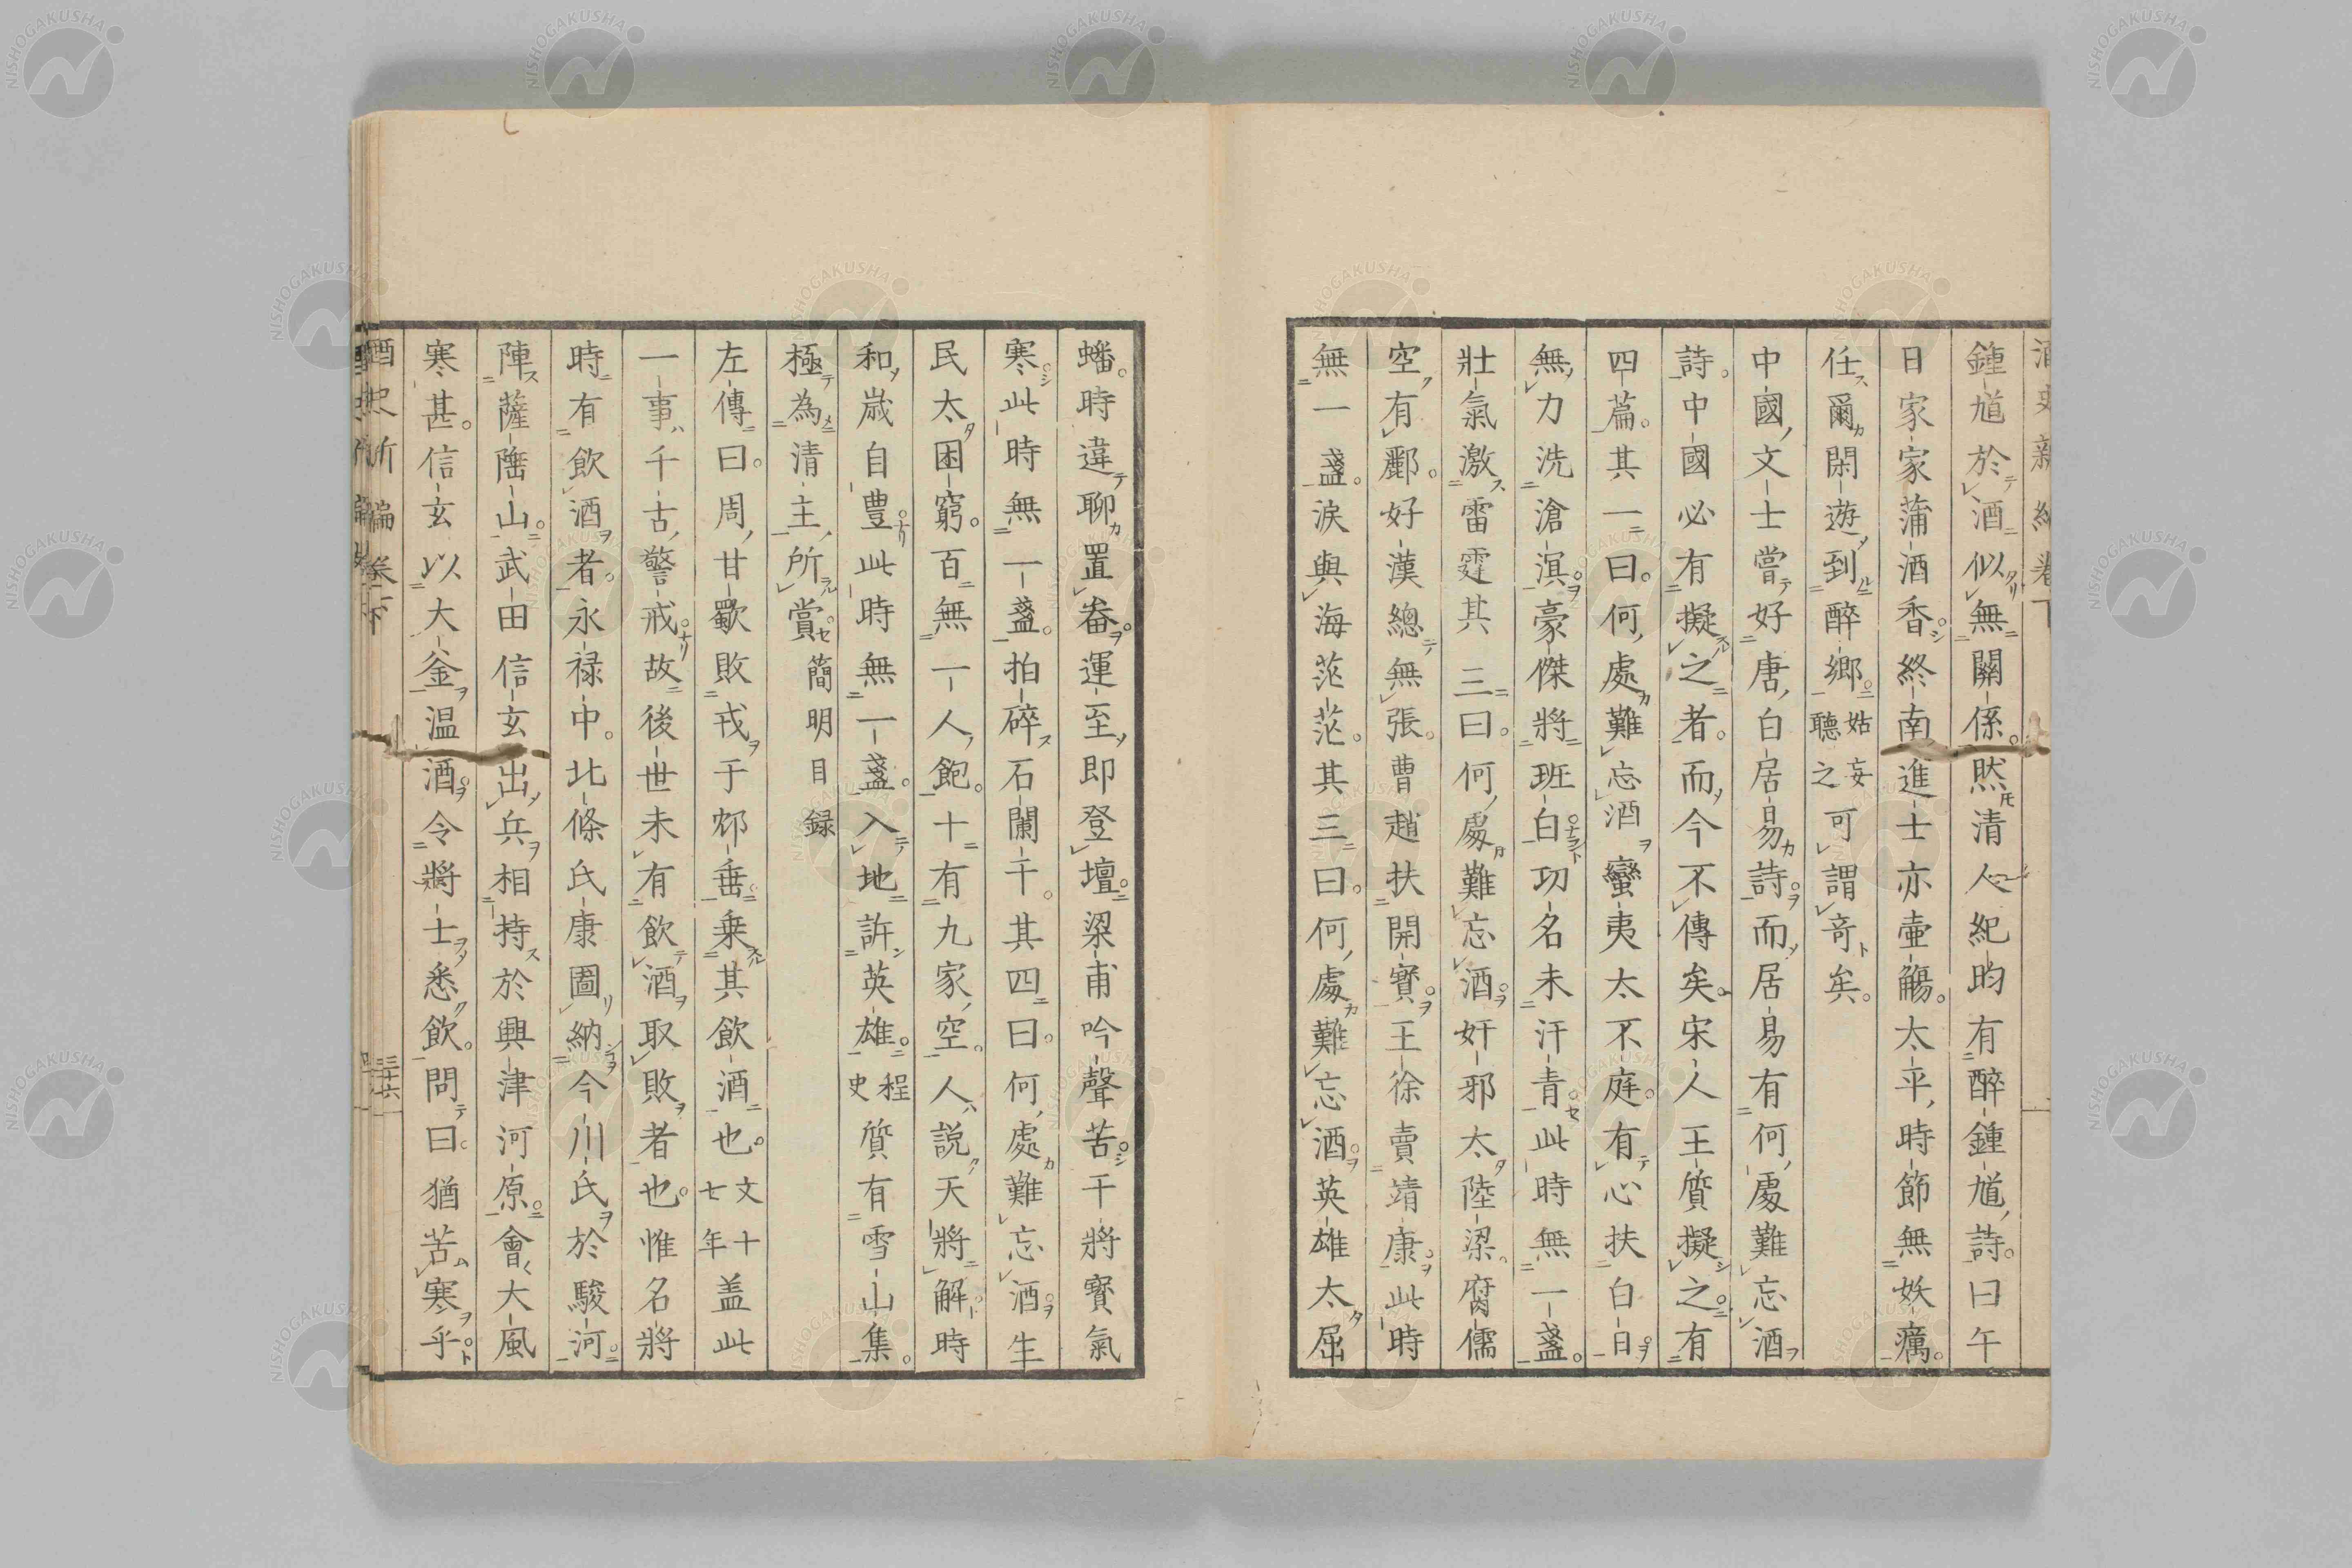 酒史新編卷下
鍾馗於酒似無關係。然清人紀昀有醉鍾馗詩。曰午
日家家蒲酒香。終南進士亦壷觴。太平時節無妖癘。
任爾閑遊到醉鄉。姑妄聽之可謂竒矣。
中國文士嘗好唐白居易詩。而居易有何處難忘酒
詩。中國必有擬之者。而今不傳矣。宋人王質擬之。有
四篇。其一曰。何處難忘酒蠻夷太不庭。有心扶白日。
無力洗滄溟。豪傑將班白功名未汗青。此時無一盞。
壯氣激雷霆其三曰。何處難忘酒。奸邪太陸梁。腐儒
空有酈。好漢總無張。曹趙扶開寳。王徐賣靖康。此時
無一盞。淚與海茫茫。其三曰。何處難忘酒。英雄太屈
蟠。時違聊置畚。運至即登壇。梁甫吟聲苦。干將寳氣
寒。此時無一盞。拍碎石闌干。其四曰。何處難忘酒。生
民太困窮。百無一人飽。十有九家空。人說天將解時
和歲自豊。此時無一盞。入地訴英雄。程史質有雪山集。
極為清主所賞。簡明目録
左傳曰。周甘歜敗戎于邥垂。乗其飲酒也。文十七年盖此
一事千古警戒。故後世未有飲酒取敗者也。惟名將
時有飲酒者。永禄中。北條氏康圖納今川氏於駿河。
陣薩陲山。武田信玄出兵相持於興津河原。會大風
寒甚。信玄以大釡温酒。令將士悉飲。問曰。猶苦寒乎
三十六